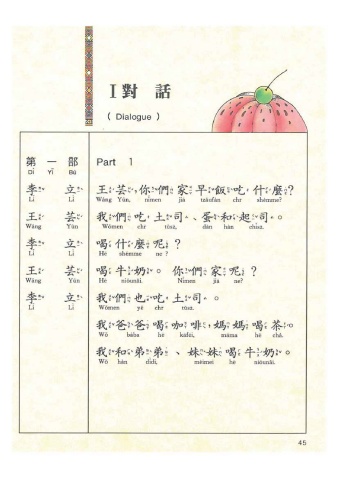 I 對 話
( Dialogue )
第 一 部 Part 1
Dì Yī Bù
李 立 王芸,你們家早飯吃,什麼?
Lǐ Lì Wáng Yún, nǐmen jiā zǎofàn chī shénme?
王 芸 我們吃,土司、蛋和起司。
Wáng Yún Wǒmen chī tǔsī, dàn hàn chǐsī.
李 立 喝什麼呢?
Lǐ Lì Hē shénme ne ?
王 芸 喝牛奶。 你們家呢?
Wáng Yún Hē niúnǎi. Nǐmen jiā ne?
李 立 我們也吃,土司。
Lǐ Lì Wǒmen yě chī tǔsī.
我爸爸喝咖啡,媽媽喝茶。
Wǒ bàba hē kāfēi, māma hē chá.
我和弟弟、妹妹喝牛奶。
Wǒ hàn dìdi, mèimei hē niúnǎi.
45